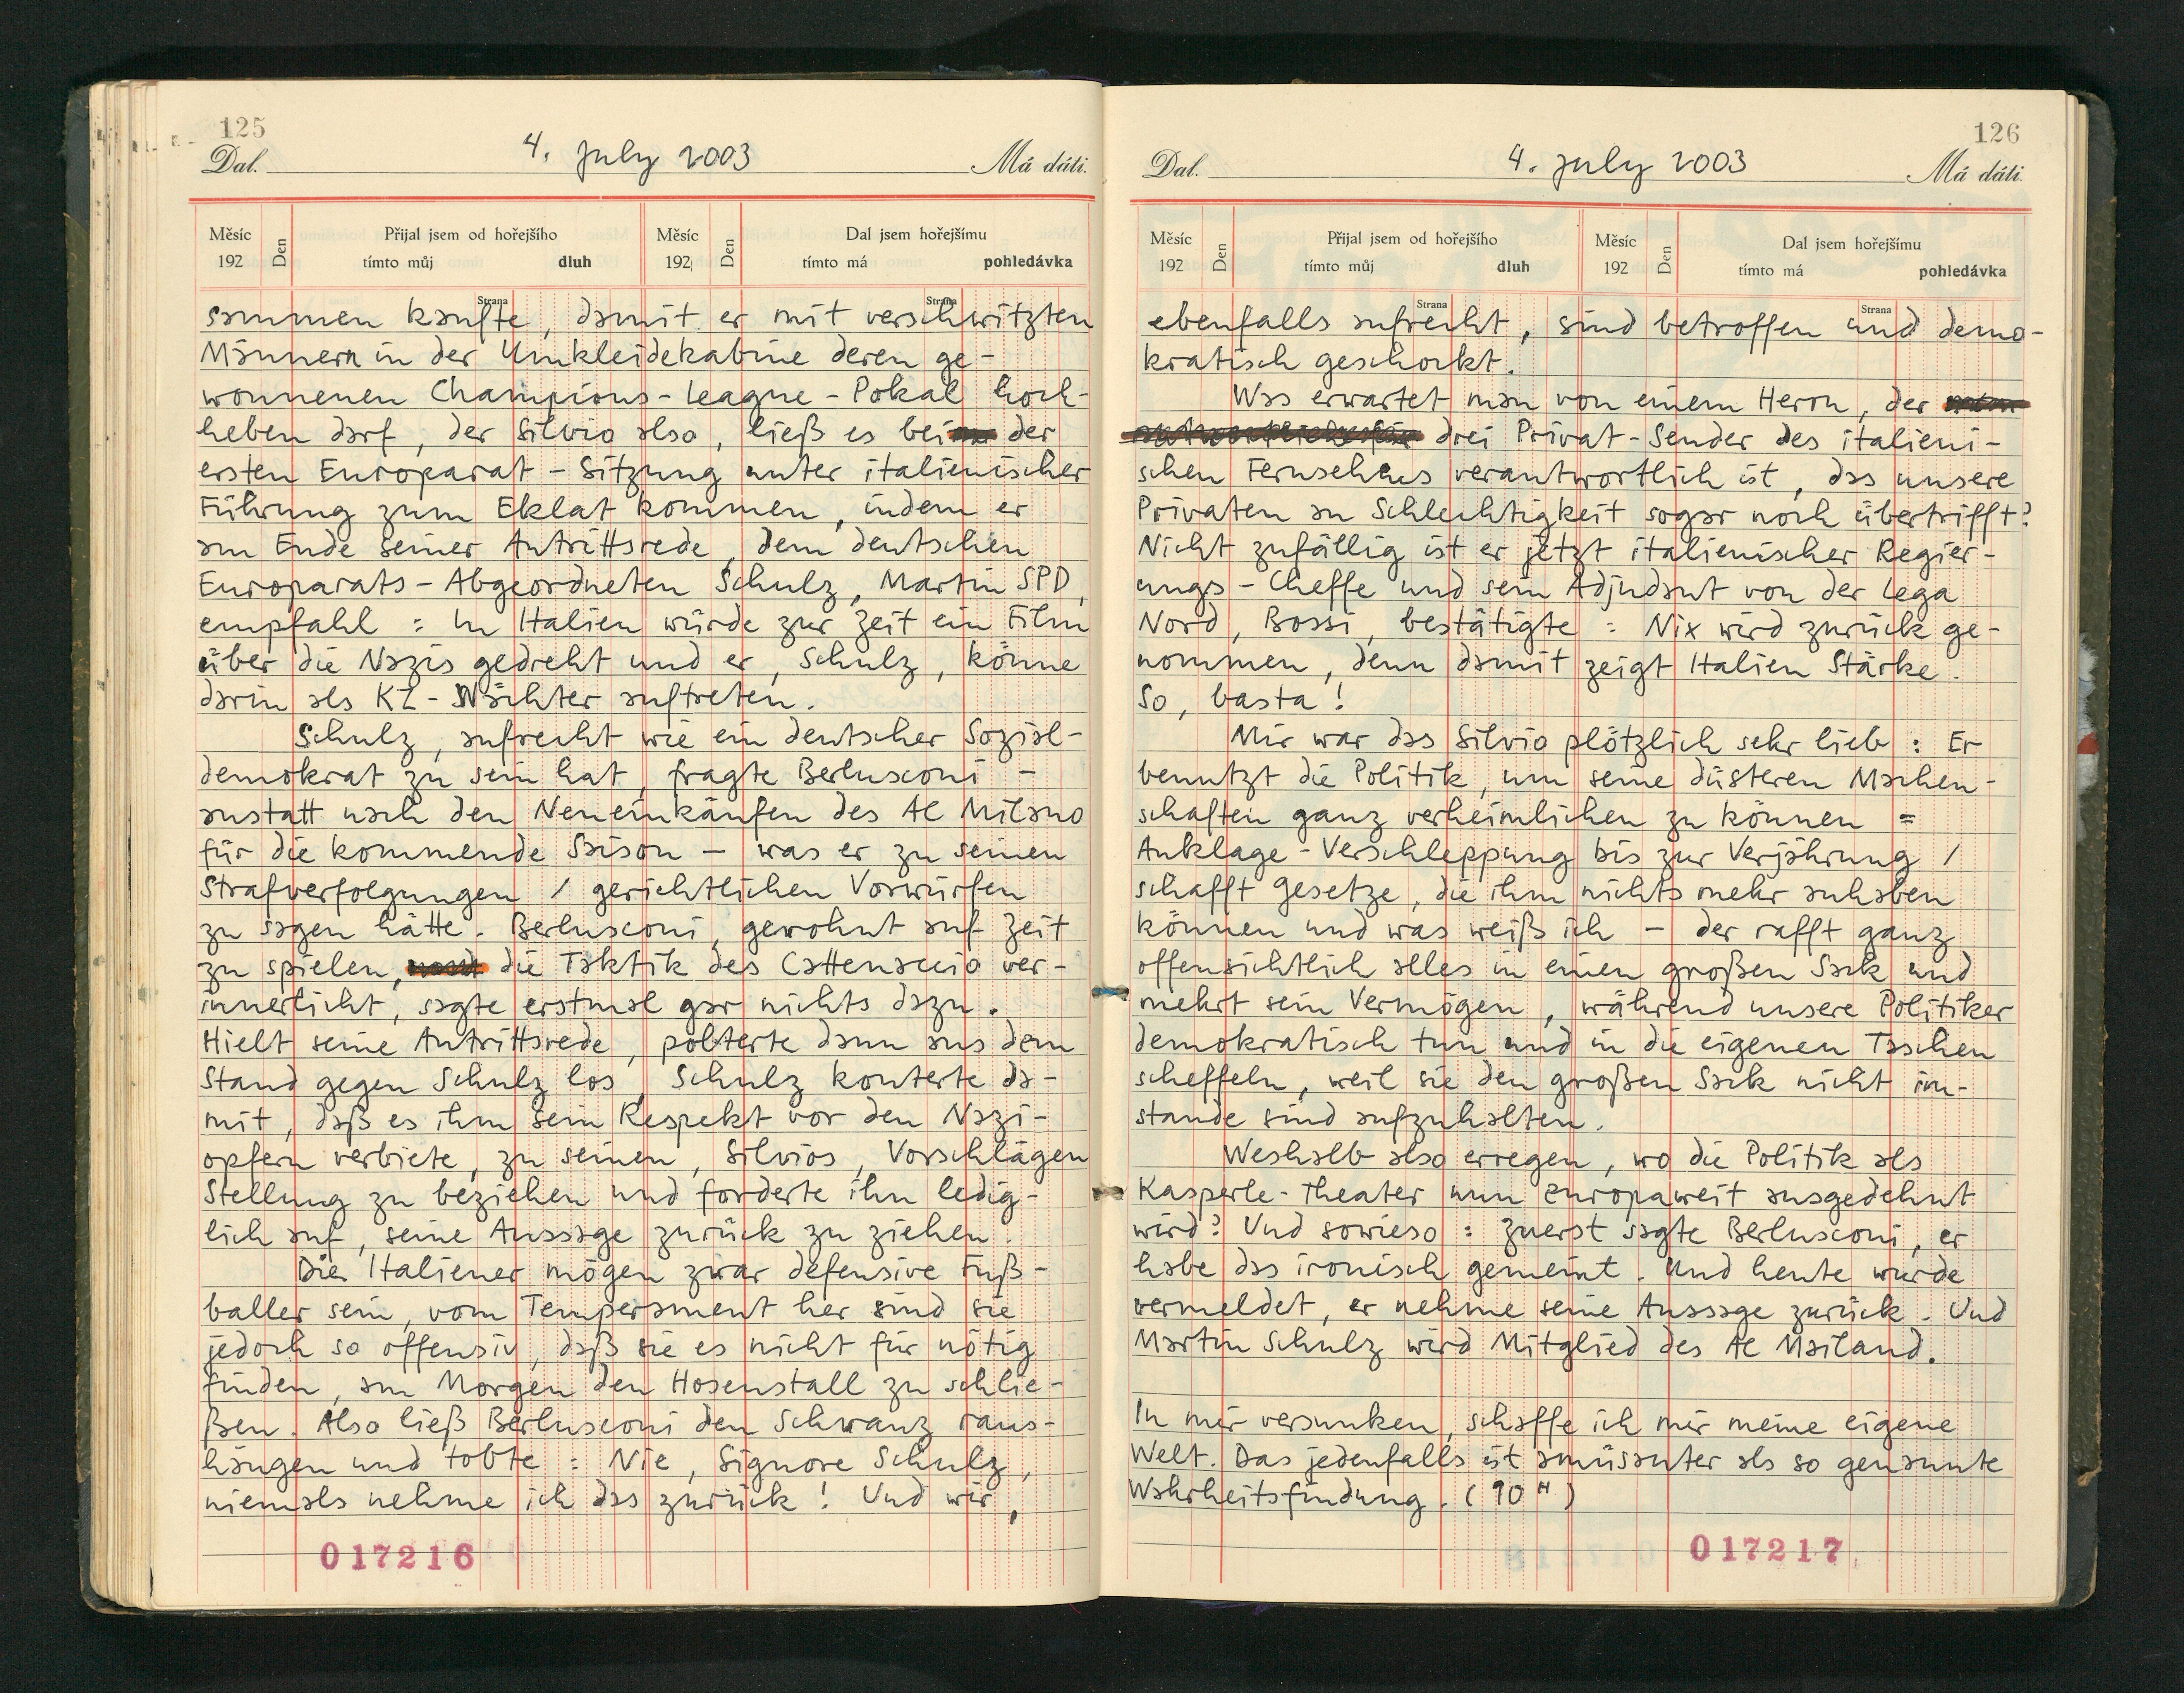 125
Dal. 4. july 2003 Má dáti.
Měsíc 192 Den Přijal jsem od hořejšího tímto můj dluh Měsíc 192 Den Dal jsem hořejšímu tímto má pohledávka
Strana Strana
sammen kaufte, damit er mit verschwitzten
Männern in der Umkleidekabine deren ge-
wonnenen Champions-League-Pokal hoch-
heben darf, der Silvio also, ließ es bei der
ersten Europarat-Sitzung unter italienischer
Führung zum Eklat kommen, indem er
am Ende seiner Antrittsrede, dem deutschen
Europarats-Abgeordneten Schulz, Martin SPD,
empfahl : In Italien würde zur Zeit ein Film
über die Nazis gedreht und er, Schulz, könne
darin als KZ-Wächter auftreten.
Schulz, aufrecht wie ein deutscher Sozial-
demokrat zu sein hat, fragte Berlusconi –
anstatt nach den Neueinkäufen des AC Milano
für die kommende Saison – was er zu seinen
Strafverfolgungen / gerichtlichen Vorwürfen
zu sagen hätte. Berlusconi, gewohnt auf Zeit
zu spielen, die Taktik des Cattenaccio ver-
innerlicht, sagte erstmal gar nichts dazu.
Hielt seine Antrittsrede, polterte dann aus dem
Stand gegen Schulz los, Schulz konterte da-
mit, daß es ihm sein Respekt vor den Nazi-
opfern verbiete, zu seinen, Silvios, Vorschlägen
Stellung zu beziehen und forderte ihn ledig-
lich auf, seine Aussage zurück zu ziehen.
Die Italiener mögen zwar defensive Fuß-
baller sein, vom Temperament her sind sie
jedoch so offensiv, daß sie es nicht für nötig
finden, am Morgen den Hosenstall zu schlie-
ßen. Also ließ Berlusconi den Schwanz raus-
hängen und tobte : Nie, Signore Schulz,
niemals nehme ich das zurück ! Und wir,
017216
126
Dal. 4. july 2003 Má dáti.
Měsíc 192 Den Přijal jsem od hořejšího tímto můj dluh Měsíc 192 Den Dal jsem hořejšímu tímto má pohledávka
Strana Strana
ebenfalls aufrecht, sind betroffen und demo-
kratisch geschockt.
Was erwartet man von einem Herrn, der
drei Privat-Sender des italieni-
schen Fernsehens verantwortlich ist, das unsere
Privaten an Schlechtigkeit sogar noch übertrifft?
Nicht zufällig ist er jetzt italienischer Regier-
ungs-Cheffe und sein Adjudant von der Lega
Nord, Bossi, bestätigte : Nix wird zurück ge-
nommen, denn damit zeigt Italien Stärke.
So, basta !
Mir war das Silvio plötzlich sehr lieb : Er
benutzt die Politik, um seine düsteren Machen-
schaften ganz verheimlichen zu können =
Anklage-Verschleppung bis zur Verjährung /
schafft Gesetze, die ihm nichts mehr anhaben
können und was weiß ich – der rafft ganz
offensichtlich alles in einen großen Sack und
mehrt sein Vermögen, während unsere Politiker
demokratisch tun und in die eigenen Taschen
scheffeln, weil sie den großen Sack nicht im-
stande sind aufzuhalten.
Weshalb also erregen, wo die Politik als
Kasperle-Theater nun europaweit ausgedehnt
wird? Und sowieso : Zuerst sagte Berlusconi, er
habe das ironisch gemeint. Und heute wurde
vermeldet, er nehme seine Aussage zurück. Und
Martin Schulz wird Mitglied des AC Mailand.
In mir versunken, schaffe ich mir meine eigene
Welt. Das jedenfalls ist amüsanter als so genannte
Wahrheitsfindung. (90")
017217